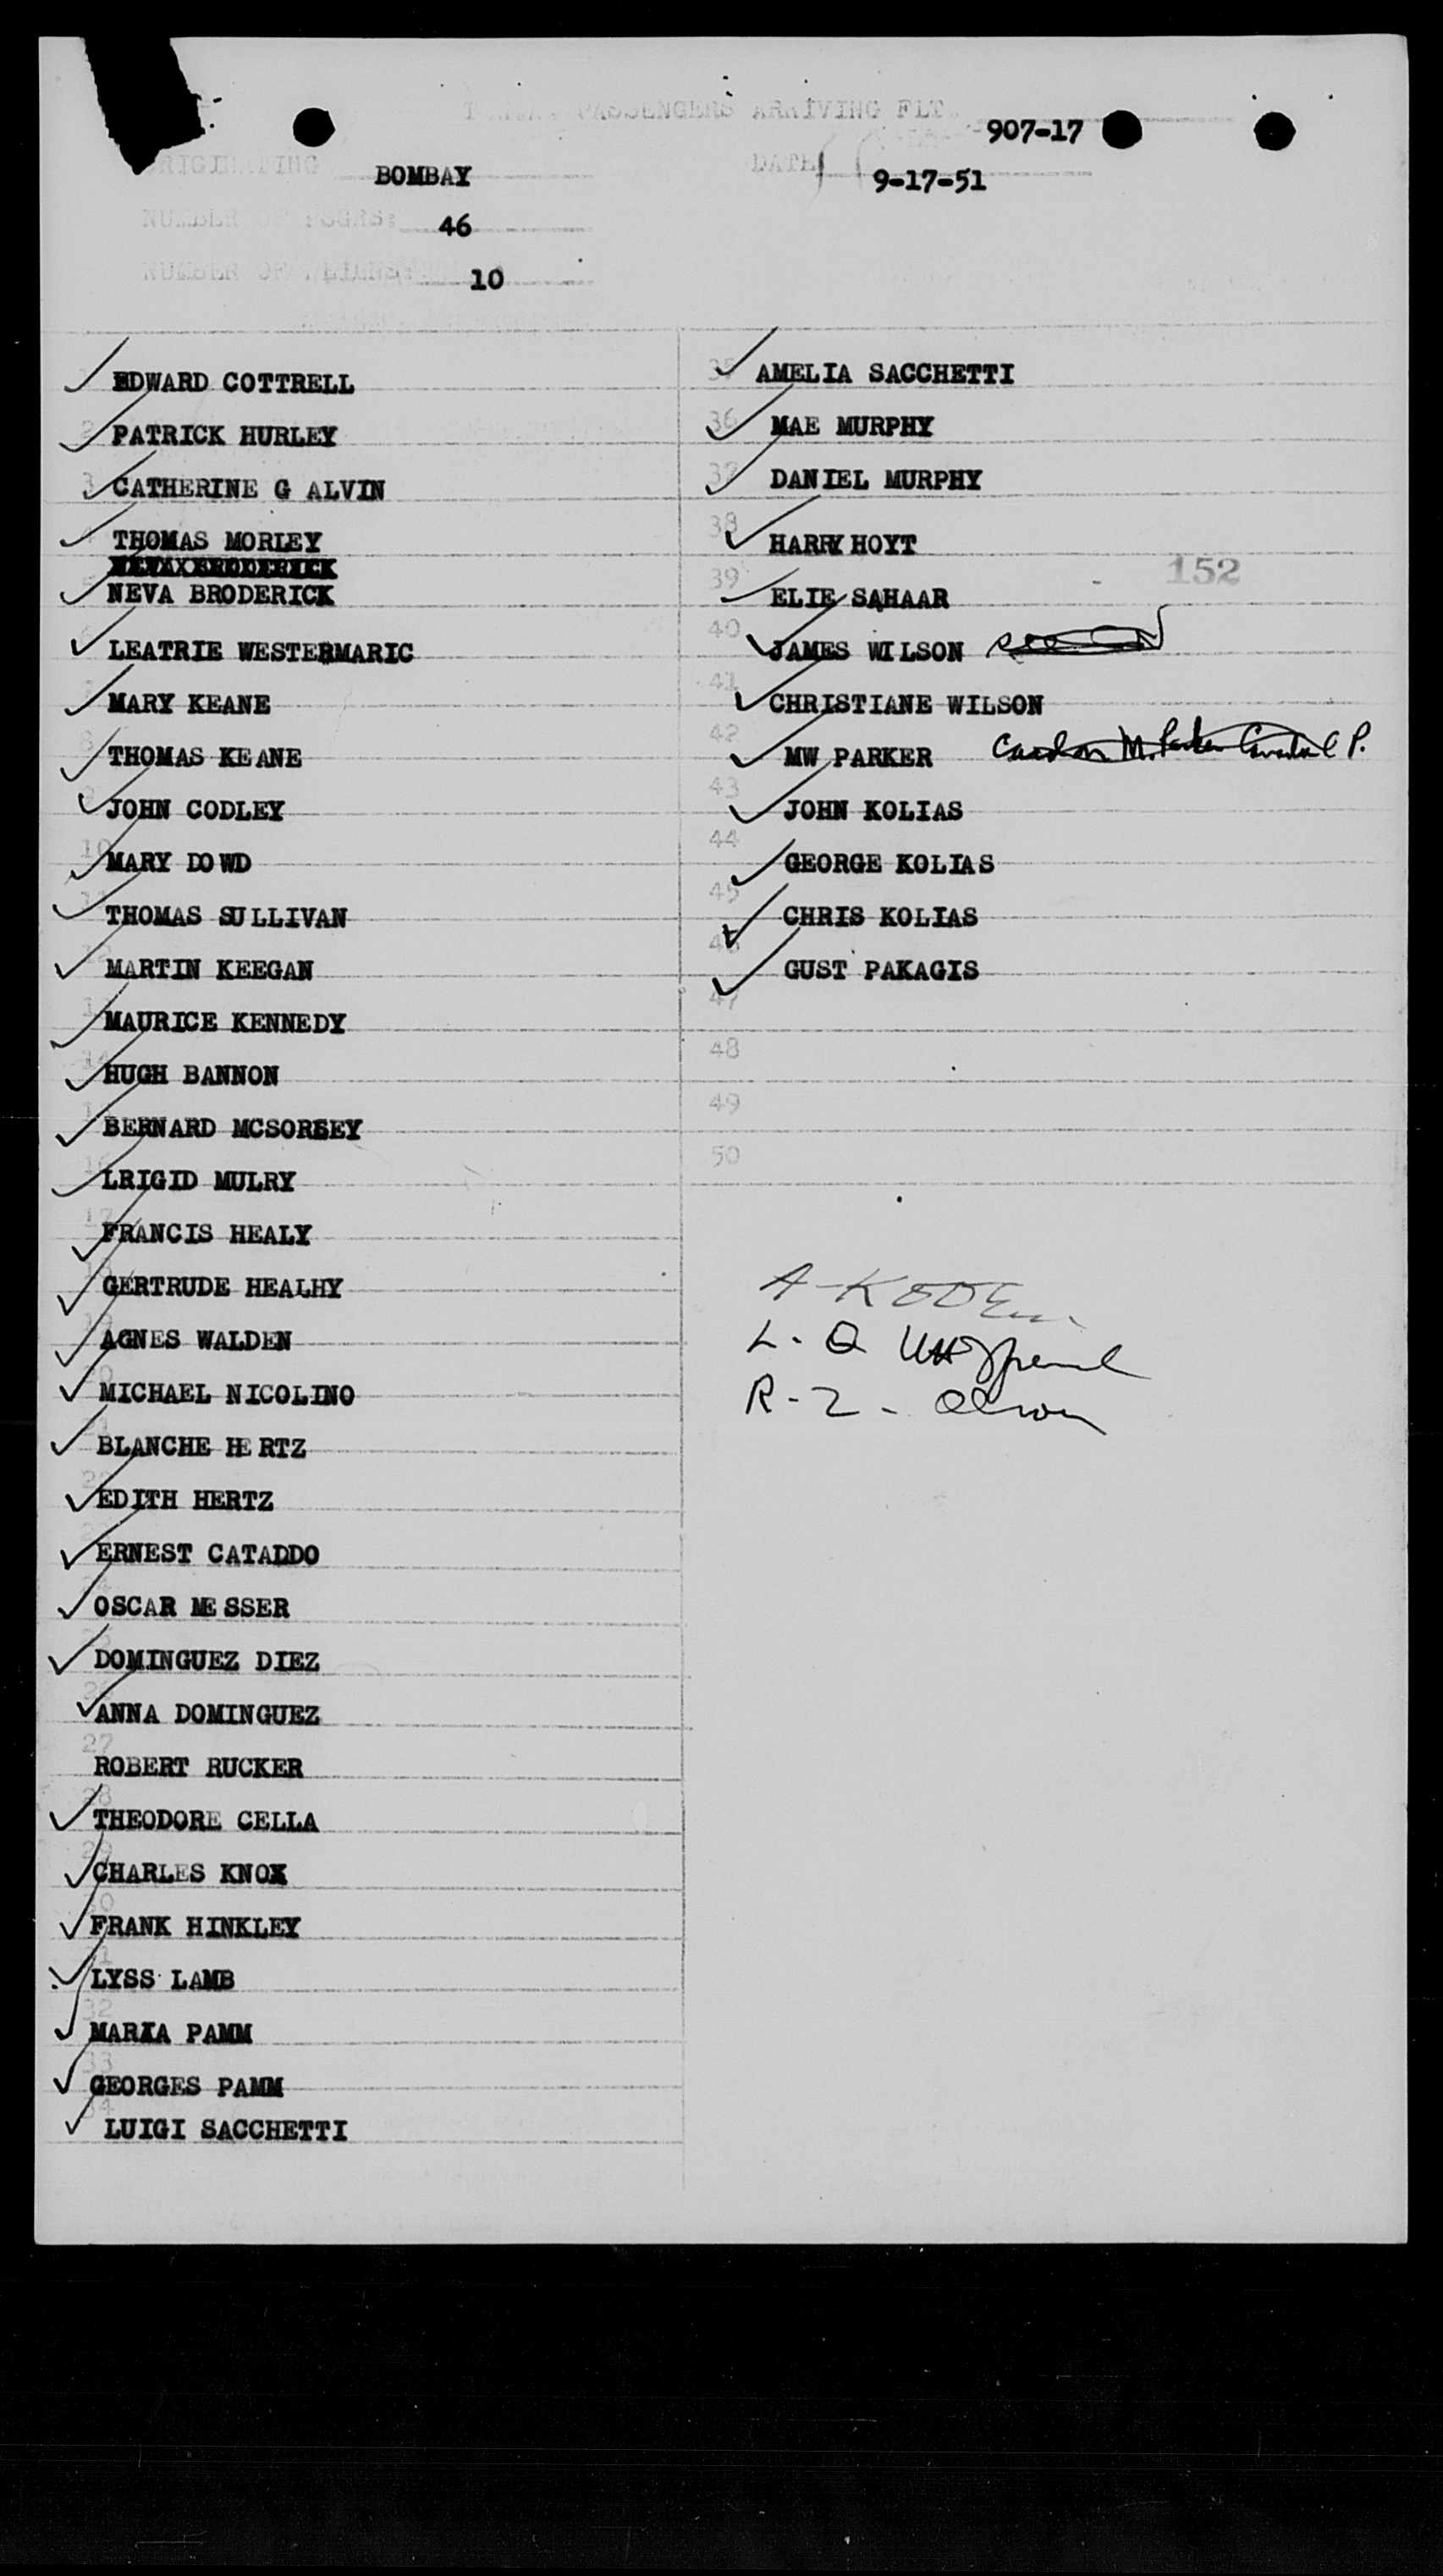 PASSENGERS ARRIVING FLT. 907-17
BOMBAY DATE 9-17-51
NUMBER OF 46
NUMBER OF 10
EDWARD COTTRELL
2 PATRICK HURLEY
3 CATHERINE G ALVIN
4 THOMAS MORLEY
NEVAXBRODERICK
5 NEVA BRODERICK
LEATRIE WESTERMARIC
7 MARY KEANE
8 THOMAS KEANE
9 JOHN CODLEY
10 MARY DOWD
11 THOMAS SULLIVAN
12 MARTIN KEEGAN
13 MAURICE KENNEDY
14 HUGH BANNON
BERNARD MCSORSEY
16 LRIGID MULRY
17 FRANCIS HEALY
GERTRUDE HEALHY
19 AGNES WALDEN
20 MICHAEL NICOLINO
21 BLANCHE HERTZ
22 EDITH HERTZ
ERNEST CATADDO
24 OSCAR MESSER
DOMINGUEZ DIEZ
ANNA DOMINGUEZ
27 ROBERT RUCKER
28 THEODORE CELLA
29 CHARLES KNOX
30 FRANK HINKLEY
31 LYSS LAMB
32 MARIA PAMM
33 GEORGES PAMM
34 LUIGI SACCHETTI
35 AMELIA SACCHETTI
36 MAE MURPHY
37 DANIEL MURPHY
38 HARRY HOYT
152
39 ELIE SAHAAR
40 JAMES WILSON
41 CHRISTIANE WILSON
42 MW PARKER M. Parker P.
43 JOHN KOLIAS
44 GEORGE KOLIAS
45 CHRIS KOLIAS
46 GUST PAKAGIS
47
48
49
50
A-K
L-Q
R-Z-